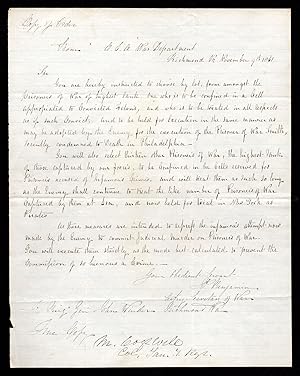 Copy of Order
C.S.A. War Department
Richmond Va November 9th 1861.
Sir
You are hereby instructed to choose by lot, from amongst the
Prisoners of War of highest rank, one who is to be confined in a Cell
appropriated to Convicted felons, and who is to be treated in all respects
as if such Convict, and to be held for execution in the same manner as
may be adopted by the Enemy, for the execution of the Prisoner of War Smith,
recently condemned to death in Philadelphia.
You will also select thirteen other Prisoners of War, the highest rank
of those captured by our forces, to be confined in the cells reserved for
Prisoners accused of infamous Crimes, and will treat them as such so long
as the Enemy shall continue to treat the like number of Prisoners of War
Captured by them at Sea, and now held for trial in New York as
Pirates.
As these measures are intended to repress the infamous attempt now
made by the Enemy, to commit judicial murder on Prisoners of War.
You will execute them strictly, as the mode best calculated to prevent the
Commission of so heinous a Crime.
Your Obedient Servant
J. P. Benjamin
Acting Secretary of War
Brig. Gen. John Winder
Richmond Va
True Copy
M. Cogswell
Col.